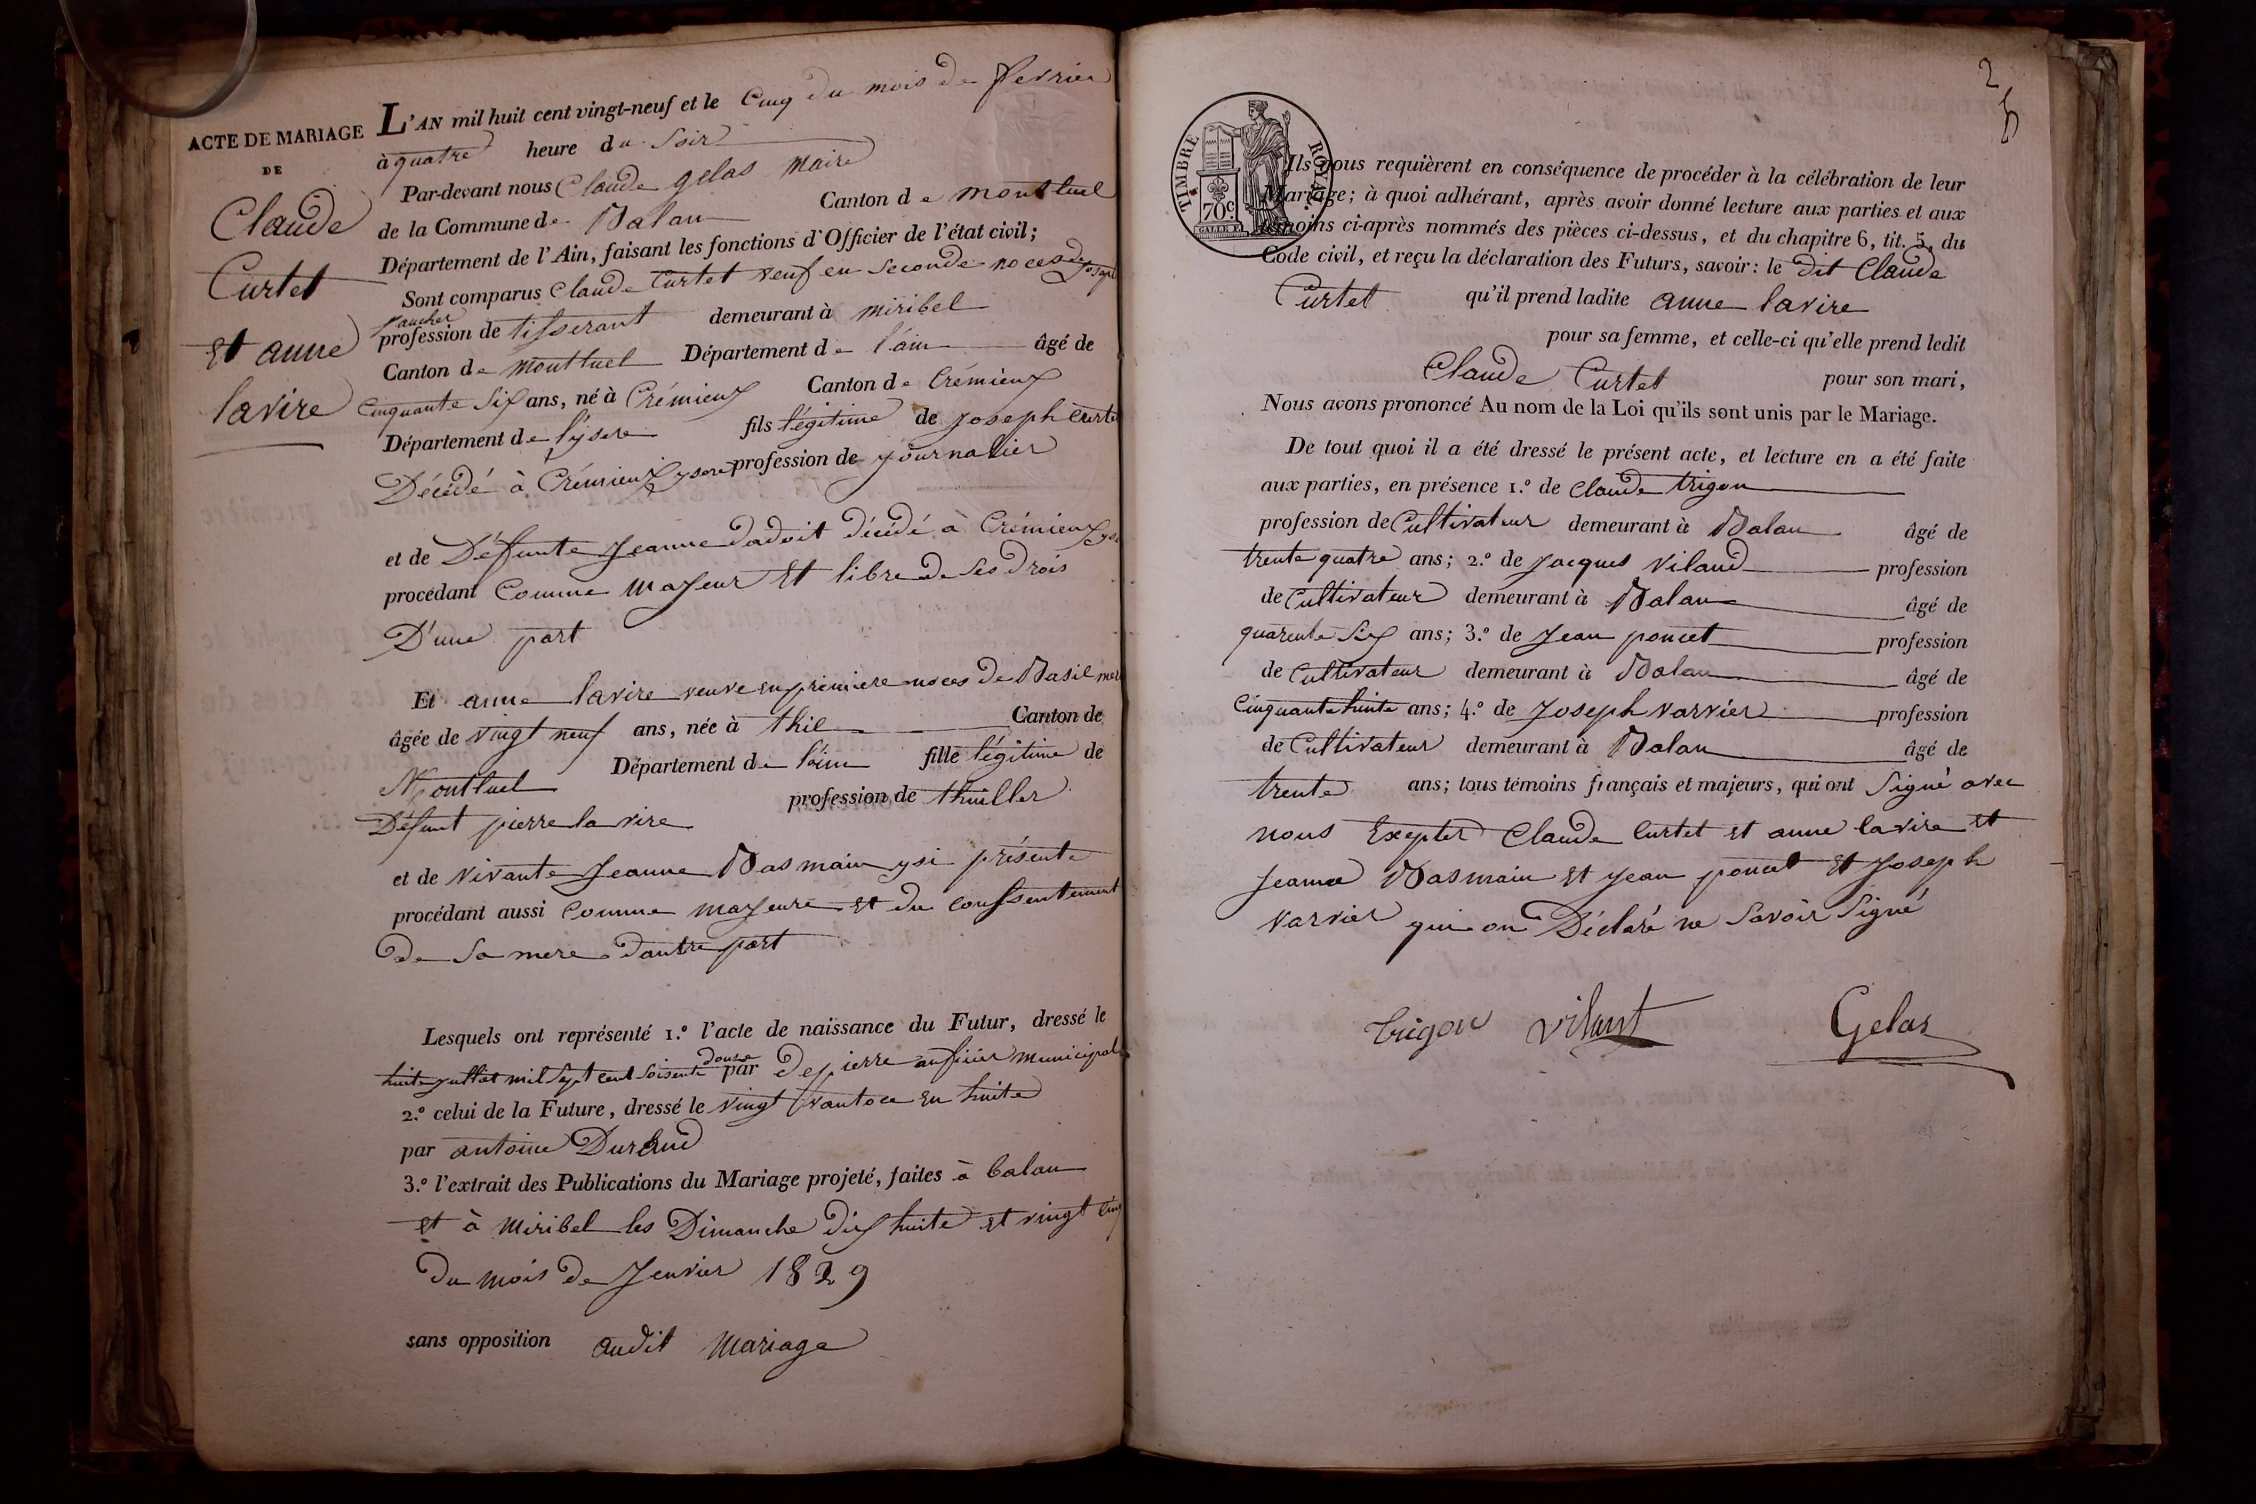 ACTE DE MARIAGE
DE
Claude
Curtet
et anne
lavire
L'AN mil huit cent vingt-neuf et le Cinq du mois de fevrier
à quatre heure du Soir
Par-devant nous Claude gelas Maire
de la Commune de Balan Canton de montluel
Département de l'Ain, faisant les fonctions d'Officier de l'état civil;
Sont comparus Claude Curtet veuf en seconde noces de
faucher
profession de tisserant demeurant à miribel
Canton de Montluel Département de l'ain âgé de
Cinquante Six ans, né à Crémieux Canton de Crémieux
Département de lysere fils légitime de joseph Curtet
Décédé à Crémieux ysere profession de journalier
et de Défunte jeanne dadoit décédé à Crémieux
procédant Comme majeur et libre de Ses drois
D'une part
Et anne lavire veuve en premiere noces de Basil
âgée de vingt neuf ans, née à thil Canton de
Montluel Département de l'ain fille légitime de
Défunt pierre lavire profession de thuiller
et de vivante jeanne Basmain ysi présente
procédant aussi Comme majeure et du conssentement
de Sa mere dautre part
Lesquels ont représenté 1.º l'acte de naissance du Futur, dressé le
douze
huite juillet mil Sept cent soisente par depierre aufficier municipal
2.º celui de la Future, dressé le vingt vantoce en huite
par antoine Durand
3.º l'extrait des Publications du Mariage projeté, faites à balan
et à Miribel les Dimanche dix huite et vingt cinq
du mois de Jenvier 1829
sans opposition audit Mariage
2
TIMBRE ROYAL
70c
Ils nous requièrent en conséquence de procéder à la célébration de leur
Mariage; à quoi adhérant, après avoir donné lecture aux parties et aux
témoins ci-après nommés des pièces ci-dessus, et du chapitre 6, tit. 5, du
Code civil, et reçu la déclaration des Futurs, savoir: le dit Claude
Curtet qu'il prend ladite anne lavire
pour sa femme, et celle-ci qu'elle prend ledit
Claude Curtet pour son mari,
Nous avons prononcé Au nom de la Loi qu'ils sont unis par le Mariage.
De tout quoi il a été dressé le présent acte, et lecture en a été faite
aux parties, en présence 1.º de Claude trigon
profession de Cultivateur demeurant à Balan âgé de
trente quatre ans; 2.º de jacques vilaud profession
de Cultivateur demeurant à Balan âgé de
quarente Six ans; 3.º de jean poncet profession
de Cultivateur demeurant à Balan âgé de
Cinquante huite ans; 4.º de joseph varvier profession
de Cultivateur demeurant à Balan âgé de
trente ans; tous témoins français et majeurs, qui ont Signé avec
nous Exepter Claude Curtet et anne lavire et
jeanne Basmain et jean poncet et joseph
varvier qui on Déclaré ne Savoir Signé
trigon vilaut Gelas